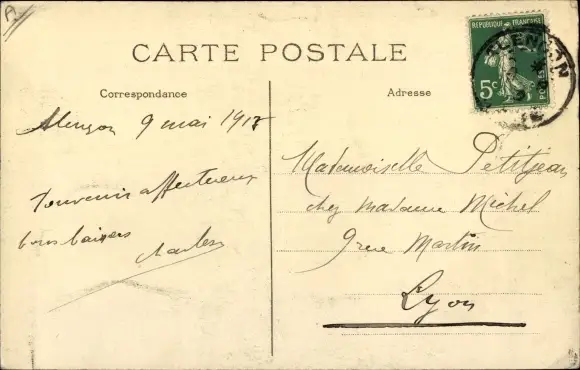 R
CARTE POSTALE
Correspondance
Adresse
RÉPUBLIQUE FRANÇAISE
5c
POSTES
ALENCON
Alençon 9 mai 1917
Souvenir affectueux
bons baisers
Charles
Mademoiselle Petitjean
chez Madame Michel
9 rue Martin
Lyon